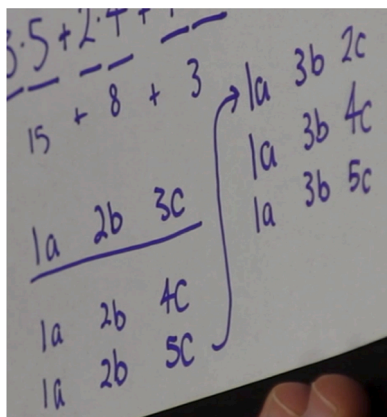 3·5+2·4+
15 + 8 + 3
1a 2b 3c
1a 2b 4c
1a 2b 5c
1a 3b 2c
1a 3b 4c
1a 3b 5c